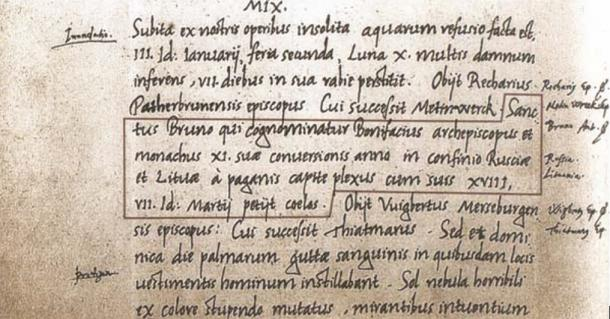 MIX.
Inundatio. Subita ex nostris operibus insolita aquarum refusio facta est,
III. Id: Ianuarij, feria secunda, Luna X. multis damnum
inferens, VII. diebus in sua rabie perstitit. Obijt Recharius
Patherbrunensis episcopus. Cui successit Metinvverck. Sanc
tus Bruno qui cognominatur Bonifacius archepiscopus et
monachus XI. suæ conversionis anno in confinio Rusciæ
et Lituæ à paganis capite plexus cum suis XVIII,
VII. Id: Martij petijt coelos. Obijt Vuigbertus Merseburgen
sis episcopus: Cui successit Thiatmarus. Sed et domi
nica die palmarum guttæ sanguinis in quibusdam locis
vestimentis hominum instillabant. Sol nebula horribili
ex colore stupendo mutatus, mirantibus intuentium
Russia.
Lituania.